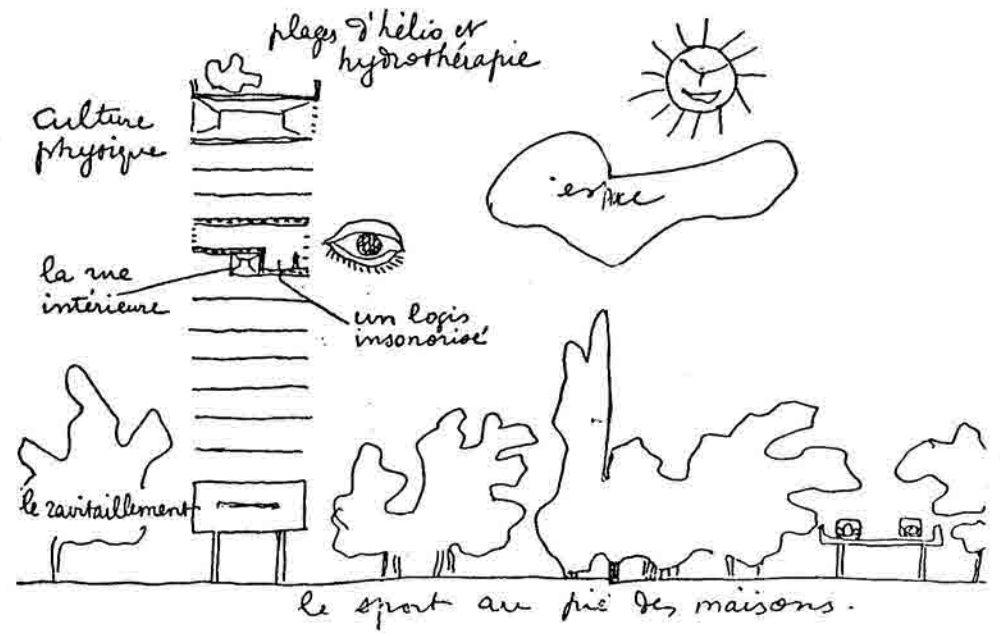 plages d'hélio et
hydrothérapie
culture
physique
espace
la rue
intérieure
un logis
insonorisé
le ravitaillement
le sport au pié des maisons.